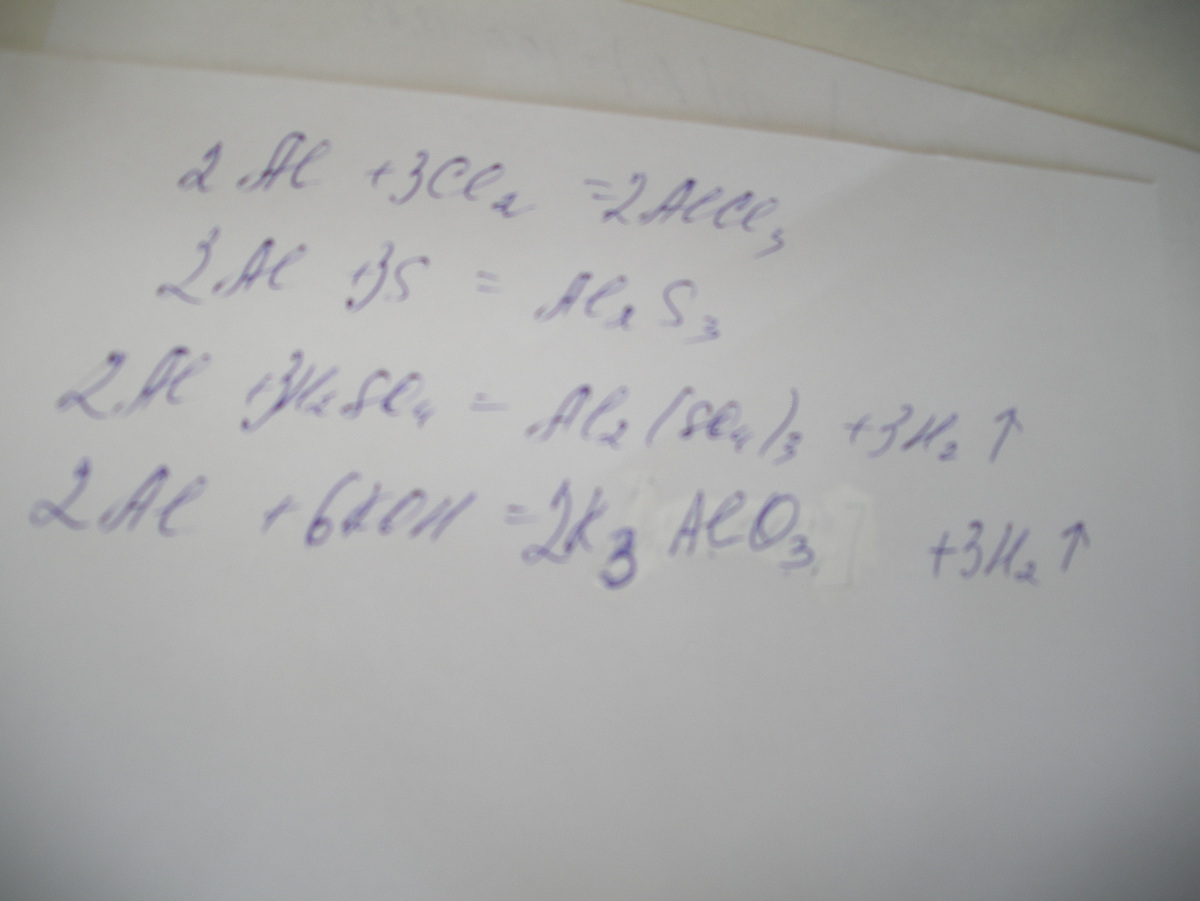 2Al +3Cl₂ =2AlCl₃
2Al +3S = Al₂S₃
2Al +3H₂SO₄ = Al₂(SO₄)₃ +3H₂↑
2Al +6KOH =2K₃AlO₃ +3H₂↑